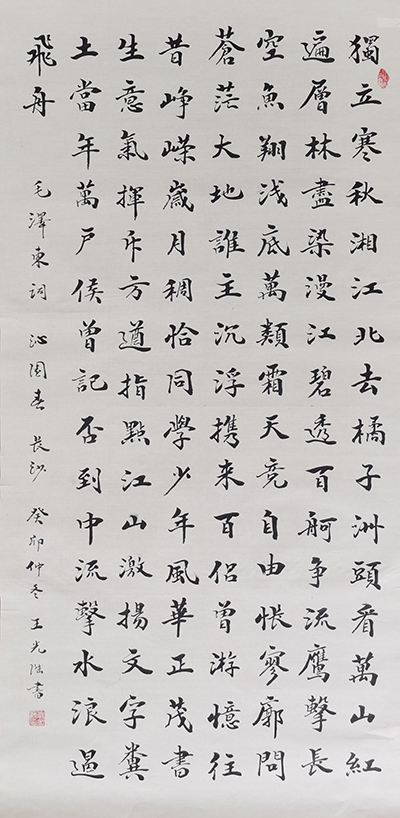 獨立寒秋湘江北去橘子洲頭看萬山紅
遍層林盡染漫江碧透百舸争流鷹擊長
空魚翔浅底萬類霜天竞自由悵寥廓問
蒼茫大地誰主沉浮携来百侣曾游憶往
昔峥嵘歲月稠恰同學少年風華正茂書
生意氣揮斥方遒指點江山激揚文字糞
土當年萬户侯曾記否到中流擊水浪遏
飛舟 毛澤東詞 沁園春 長沙 癸卯仲冬 王光書